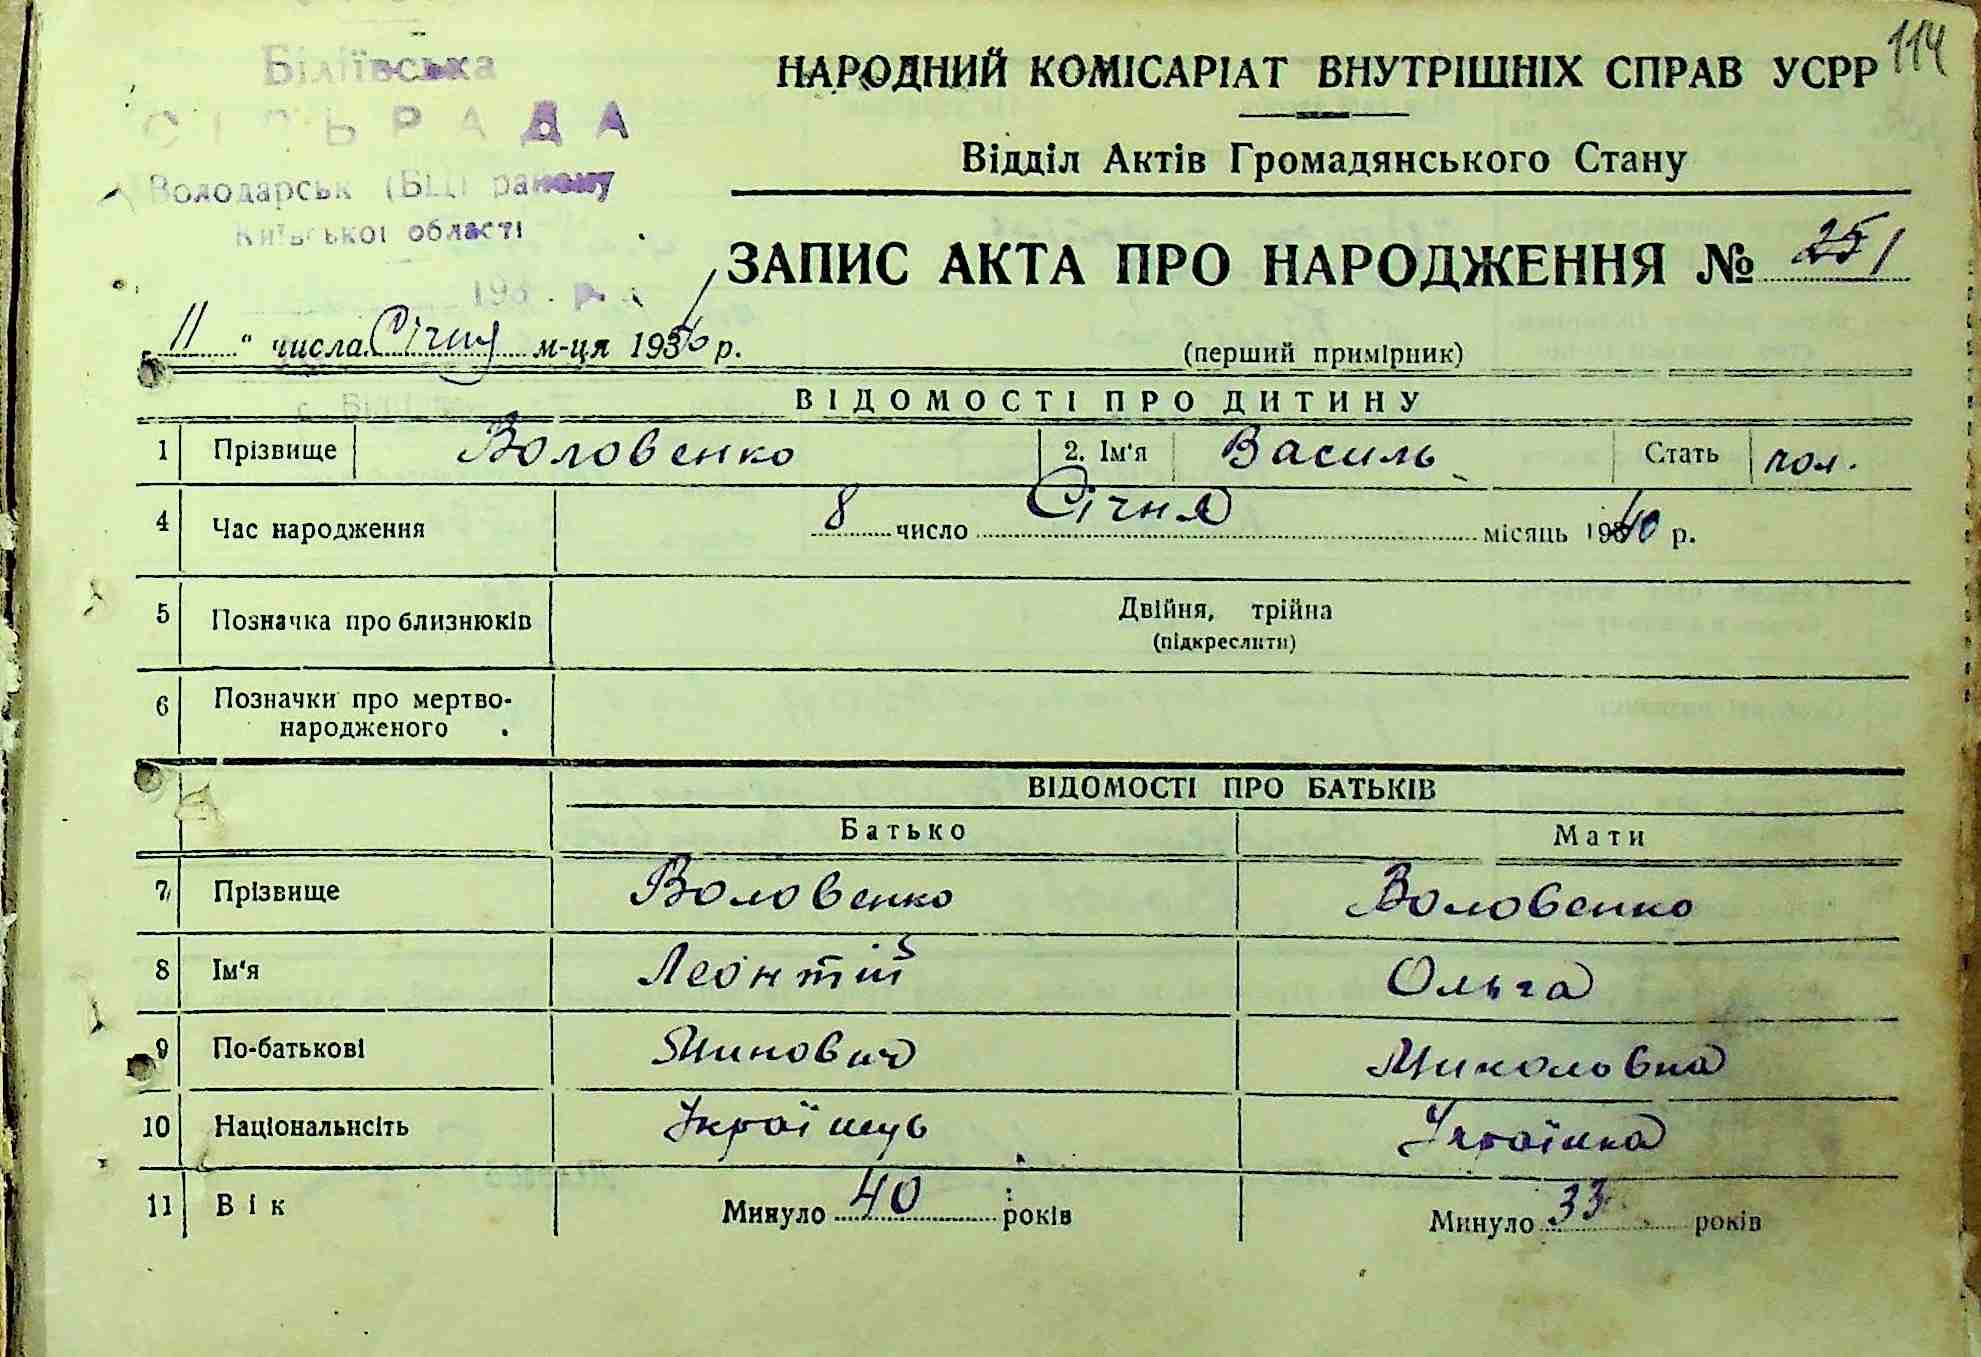 114
Біліївська
СІЛЬРАДА
Володарськ (БЦ) району
Київської області
193 . р.
НАРОДНИЙ КОМІСАРІАТ ВНУТРІШНІХ СПРАВ УСРР
Відділ Актів Громадянського Стану
ЗАПИС АКТА ПРО НАРОДЖЕННЯ № 1
11 " числа Січня м-ця 193 р.
(перший примірник)
ВІДОМОСТІ ПРО ДИТИНУ
1 Прізвище Воловенко 2. Ім'я Василь Стать чол.
4 Час народження 8 число Січня місяць 1940 р.
5 Позначка про близнюків Двійня, трійна
(підкреслити)
6 Позначки про мертво-
народженого
ВІДОМОСТІ ПРО БАТЬКІВ
Батько Мати
7 Прізвище Воловенко Воловенко
8 Ім'я Леонтій Ольга
9 По-батькові Миколовна
10 Національнсіть Українець Українка
11 Вік Минуло 40 років Минуло 33 років